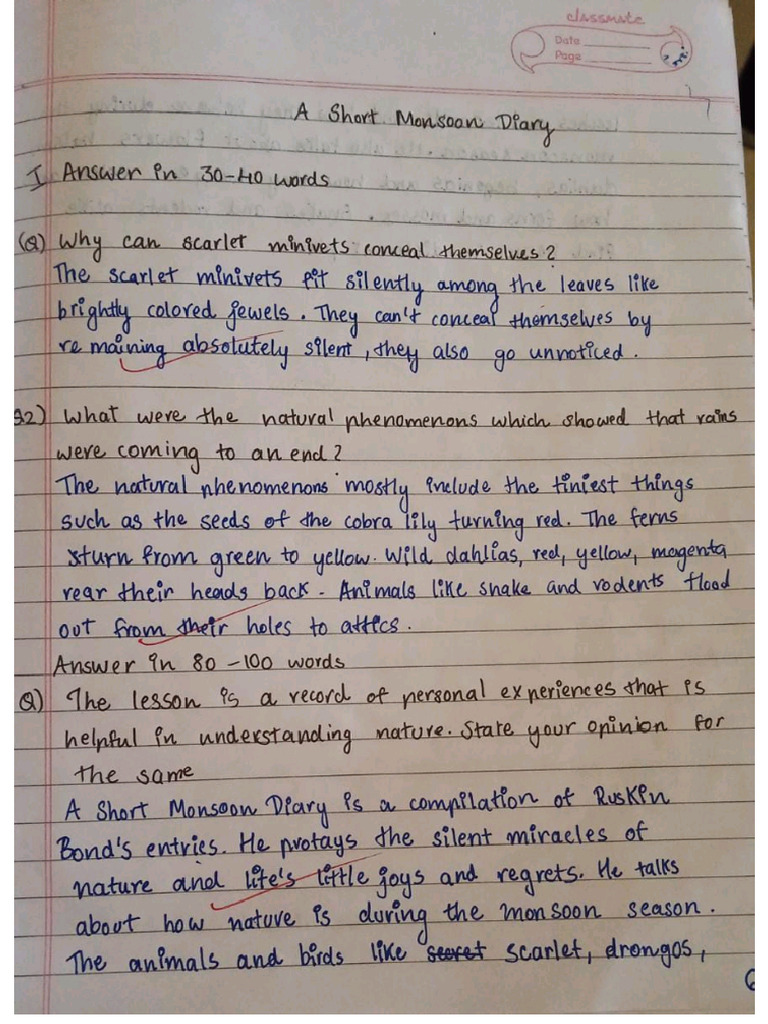 classmate
Date
Page
A Short Monsoon Diary
I Answer in 30-40 words
(Q) Why can scarlet minivets conceal themselves?
The scarlet minivets fit silently among the leaves like
brightly colored jewels. They can't conceal themselves by
remaining absolutely silent, they also go unnoticed.
Q2) What were the natural phenomenons which showed that rains
were coming to an end?
The natural phenomenons mostly include the tiniest things
such as the seeds of the cobra lily turning red. The ferns
turn from green to yellow. Wild dahlias, red, yellow, magenta
rear their heads back. Animals like snake and rodents flood
out from their holes to attics.
Answer in 80-100 words
Q) The lesson is a record of personal experiences that is
helpful in understanding nature. State your opinion for
the same
A Short Monsoon Diary is a compilation of Ruskin
Bond's entries. He protays the silent miracles of
nature and life's little joys and regrets. He talks
about how nature is during the monsoon season.
The animals and birds like scarlet, drongos,